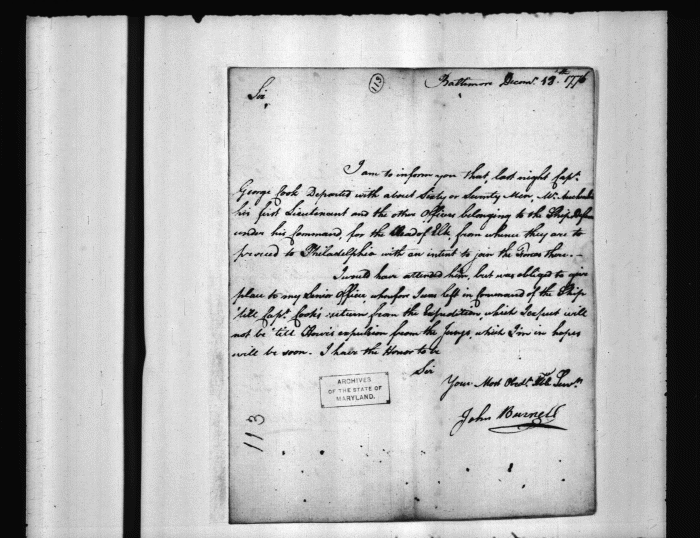 113
Baltimore Decemr. 13th. 1776
Sir
I am to inform you that, last night Capt.
George Cook Departed with about Sixty or Seventy Men, Mr.
his first Lieutenant and the other Officers belonging to the Ship Defence
under his Command, for the Head of Elk from whence they are to
proceed to Philadelphia with an intent to join the Forces there.—
I would have attended him, but was obliged to give
place to my Senior Officer, wherefore I was left in Command of the Ship
'till Capt. Cook's return from the Expedition, which I expect will
not be 'till expulsion from the Jerseys, which I'm in hopes
will be soon. I have the Honor to be
Sir
Your Most Obedt. Hble Servt.
John Burnell
ARCHIVES
OF THE STATE OF
MARYLAND.
113